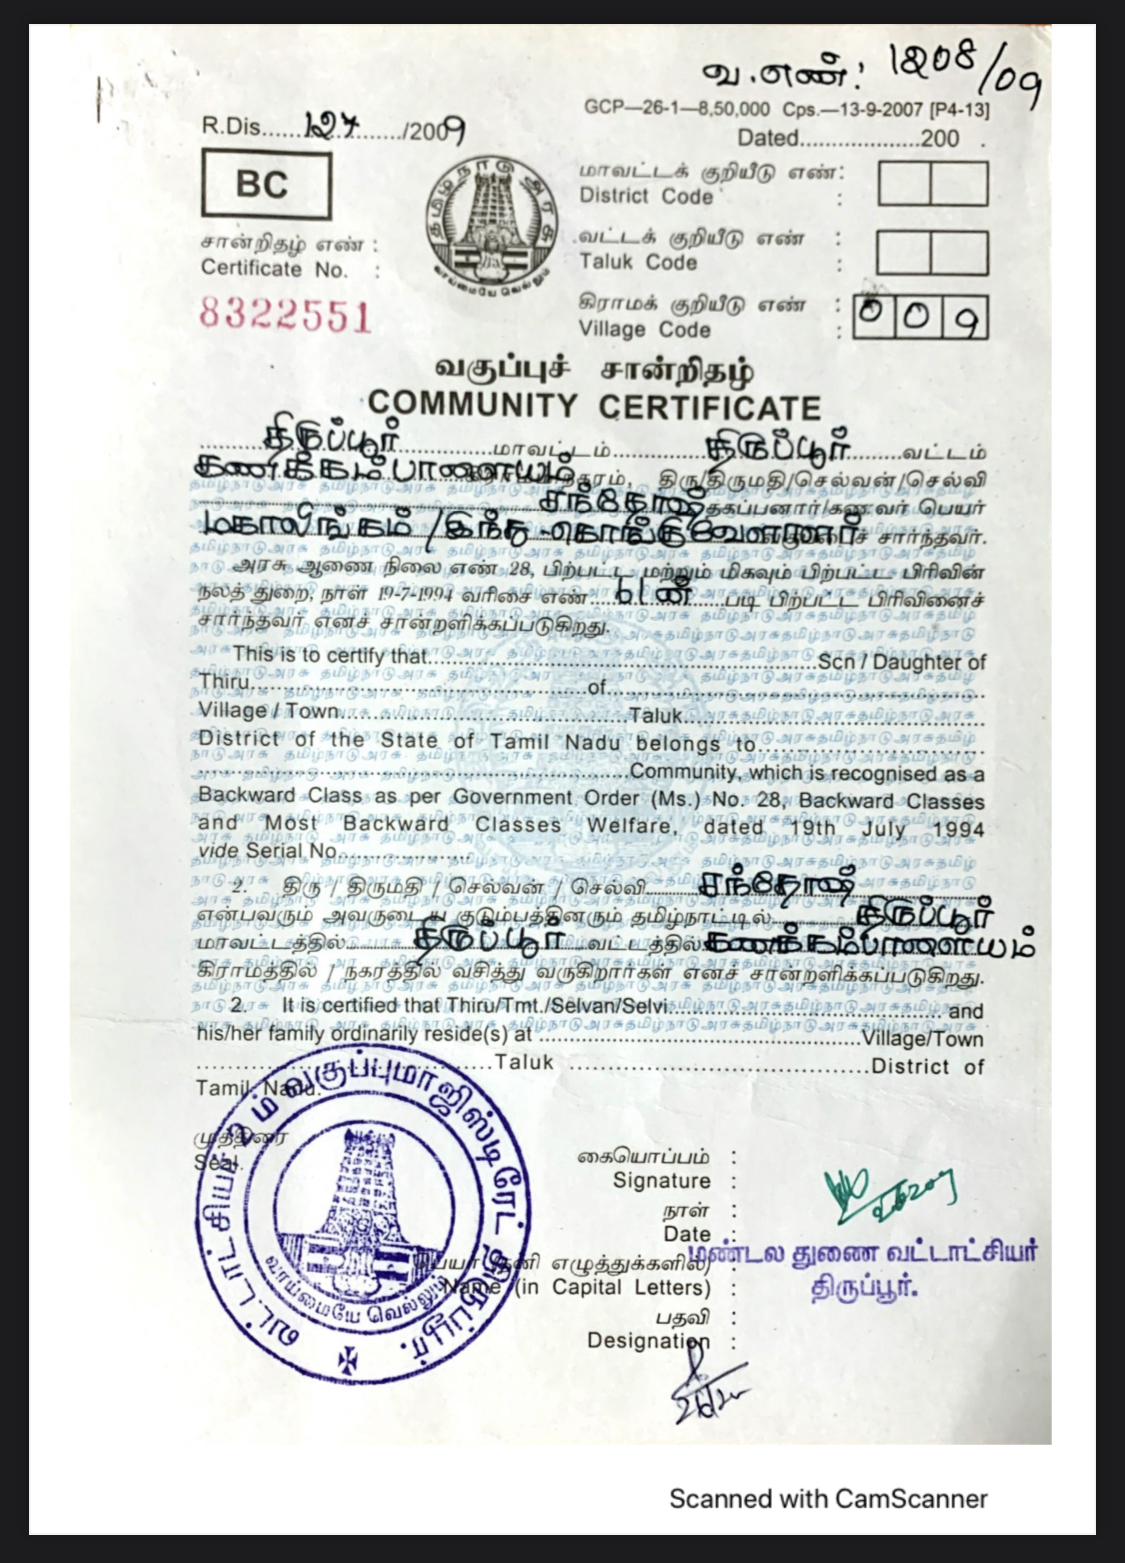 வ.எண்: 1208/09
GCP—26-1—8,50,000 Cps.—13-9-2007 [P4-13]
R.Dis......127........./2009
Dated...................200 .
BC
தமிழ்நாடு அரசு
வாய்மையே வெல்லும்
மாவட்டக் குறியீடு எண் :
District Code :
வட்டக் குறியீடு எண் :
Taluk Code :
சான்றிதழ் எண் :
Certificate No. :
8322551
கிராமக் குறியீடு எண் :
Village Code : 0 0 9
வகுப்புச் சான்றிதழ்
COMMUNITY CERTIFICATE
திருப்பூர் மாவட்டம் திருப்பூர் வட்டம்
கணக்கம்பாளையம் திரு/திருமதி/செல்வன்/செல்வி
சந்தோஷ் தகப்பனார்/கணவர் பெயர்
மகாலிங்கம் / இந்து-கொங்குவேளாளர் சார்ந்தவர்.
அரசு ஆணை நிலை எண் 28, பிற்பட்ட மற்றும் மிகவும் பிற்பட்ட பிரிவின்
நலத் துறை, நாள் 19-7-1994 வரிசை எண் படி பிற்பட்ட பிரிவினைச்
சார்ந்தவர் எனச் சான்றளிக்கப்படுகிறது.
This is to certify that..................................................Son / Daughter of
Thiru.............................................of..................................................
Village / Town......................................Taluk.......................................
District of the State of Tamil Nadu belongs to..............................
........................................................Community, which is recognised as a
Backward Class as per Government Order (Ms.) No. 28, Backward Classes
and Most Backward Classes Welfare, dated 19th July 1994
vide Serial No...................
2. திரு / திருமதி / செல்வன் / செல்வி சந்தோஷ்
என்பவரும் அவருடைய குடும்பத்தினரும் தமிழ்நாட்டில் திருப்பூர்
மாவட்டத்தில் திருப்பூர் வட்டத்தில் கணக்கம்பாளையம்
கிராமத்தில் / நகரத்தில் வசித்து வருகிறார்கள் எனச் சான்றளிக்கப்படுகிறது.
2. It is certified that Thiru/Tmt./Selvan/Selvi....................................... and
his/her family ordinarily reside(s) at .............................................Village/Town
.........................................Taluk .........................................District of
Tamil Nadu.
முத்திரை
Seal.
வட்டாட்சியர் வகுப்புமாஜிஸ்டிரேட் திருப்பூர்.
வாய்மையே வெல்லும்
கையொப்பம் :
Signature :
நாள் :
Date :
பெயர் (தனி எழுத்துக்களில்)
மண்டல துணை வட்டாட்சியர்
Name (in Capital Letters) :
திருப்பூர்.
பதவி :
Designation :
Scanned with CamScanner